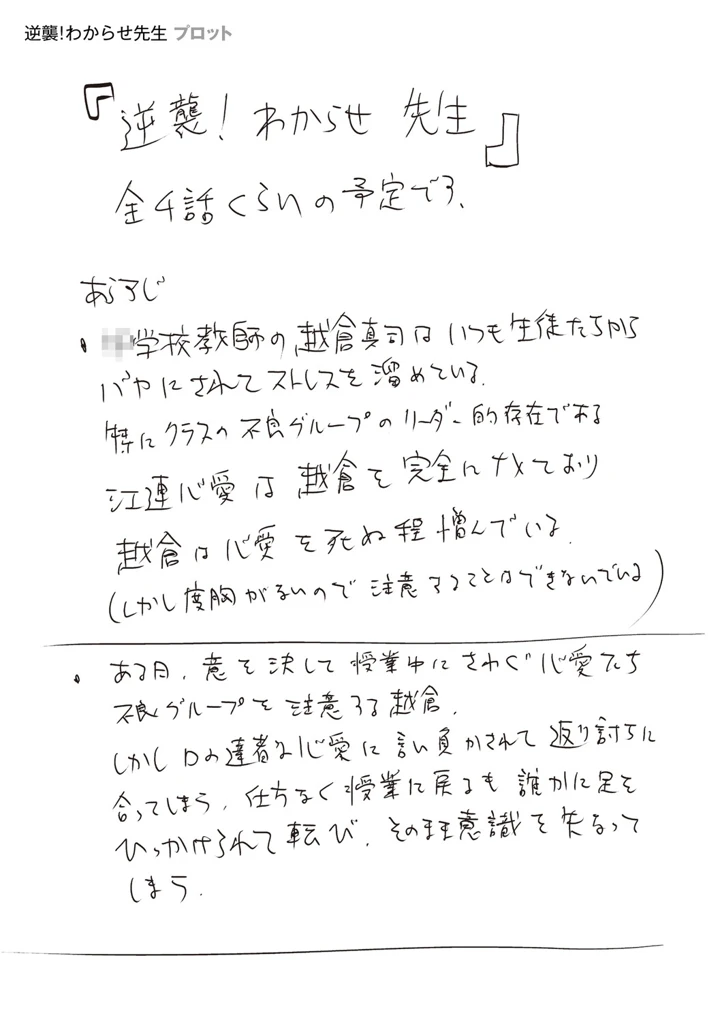 逆襲!わからせ先生 プロット
『逆襲! わからせ 先生』
全4話くらいの予定です、
あらすじ
・学校教師の越倉真司はいつも生徒たちから
バカにされてストレスを溜めている。
特にクラスの不良グループのリーダー的存在である
江連心愛は越倉を完全にナメており
越倉は心愛を死ぬ程憎んでいる。
(しかし度胸がないので注意することはできないでいる)
・ある日、意を決して授業中にさわぐ心愛たち
不良グループを注意する越倉。
しかし口の達者な心愛に言い負かされて返り討ちに
合ってしまう。仕方なく授業に戻るも誰かに足を
ひっかけられて転び、そのまま意識を失なって
しまう。